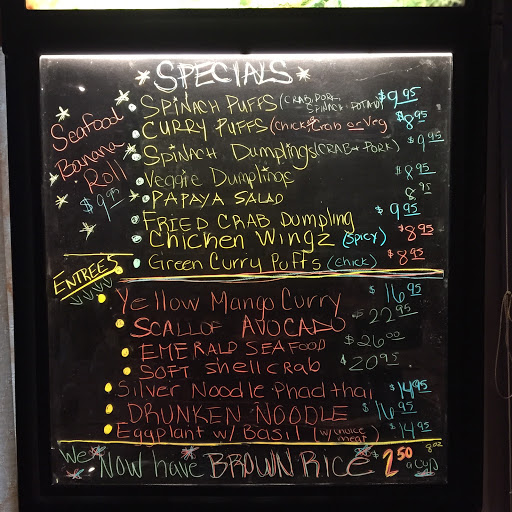 * SPECIALS *
* Seafood Banana Roll * $9.95
• SPINACH PUFFS (CRAB, PORK, SPINACH + POTATO) $9.95
• CURRY PUFFS (Chick, Crab or Veg $8.95
• SPINACH DUMPLINGS (CRAB + PORK) $9.95
• Veggie Dumplings $8.95
• PAPAYA SALAD 8.95
• FRIED CRAB Dumpling $9.95
• Chicken Wingz (Spicy) $8.95
• Green Curry Puffs (chick) $8.95
ENTREES
Yellow Mango Curry $16.95
• SCALLOP AVOCADO $22.95
• EMERALD SEAFOOD $26.00
• SOFT Shell CRAB $20.95
• Silver Noodle Phad thai $14.95
• DRUNKEN NOODLE $16.95
• Eggplant w/ Basil (w/ choice meat) $14.95
We Now have BROWN RICE $2.50 8oz a cup